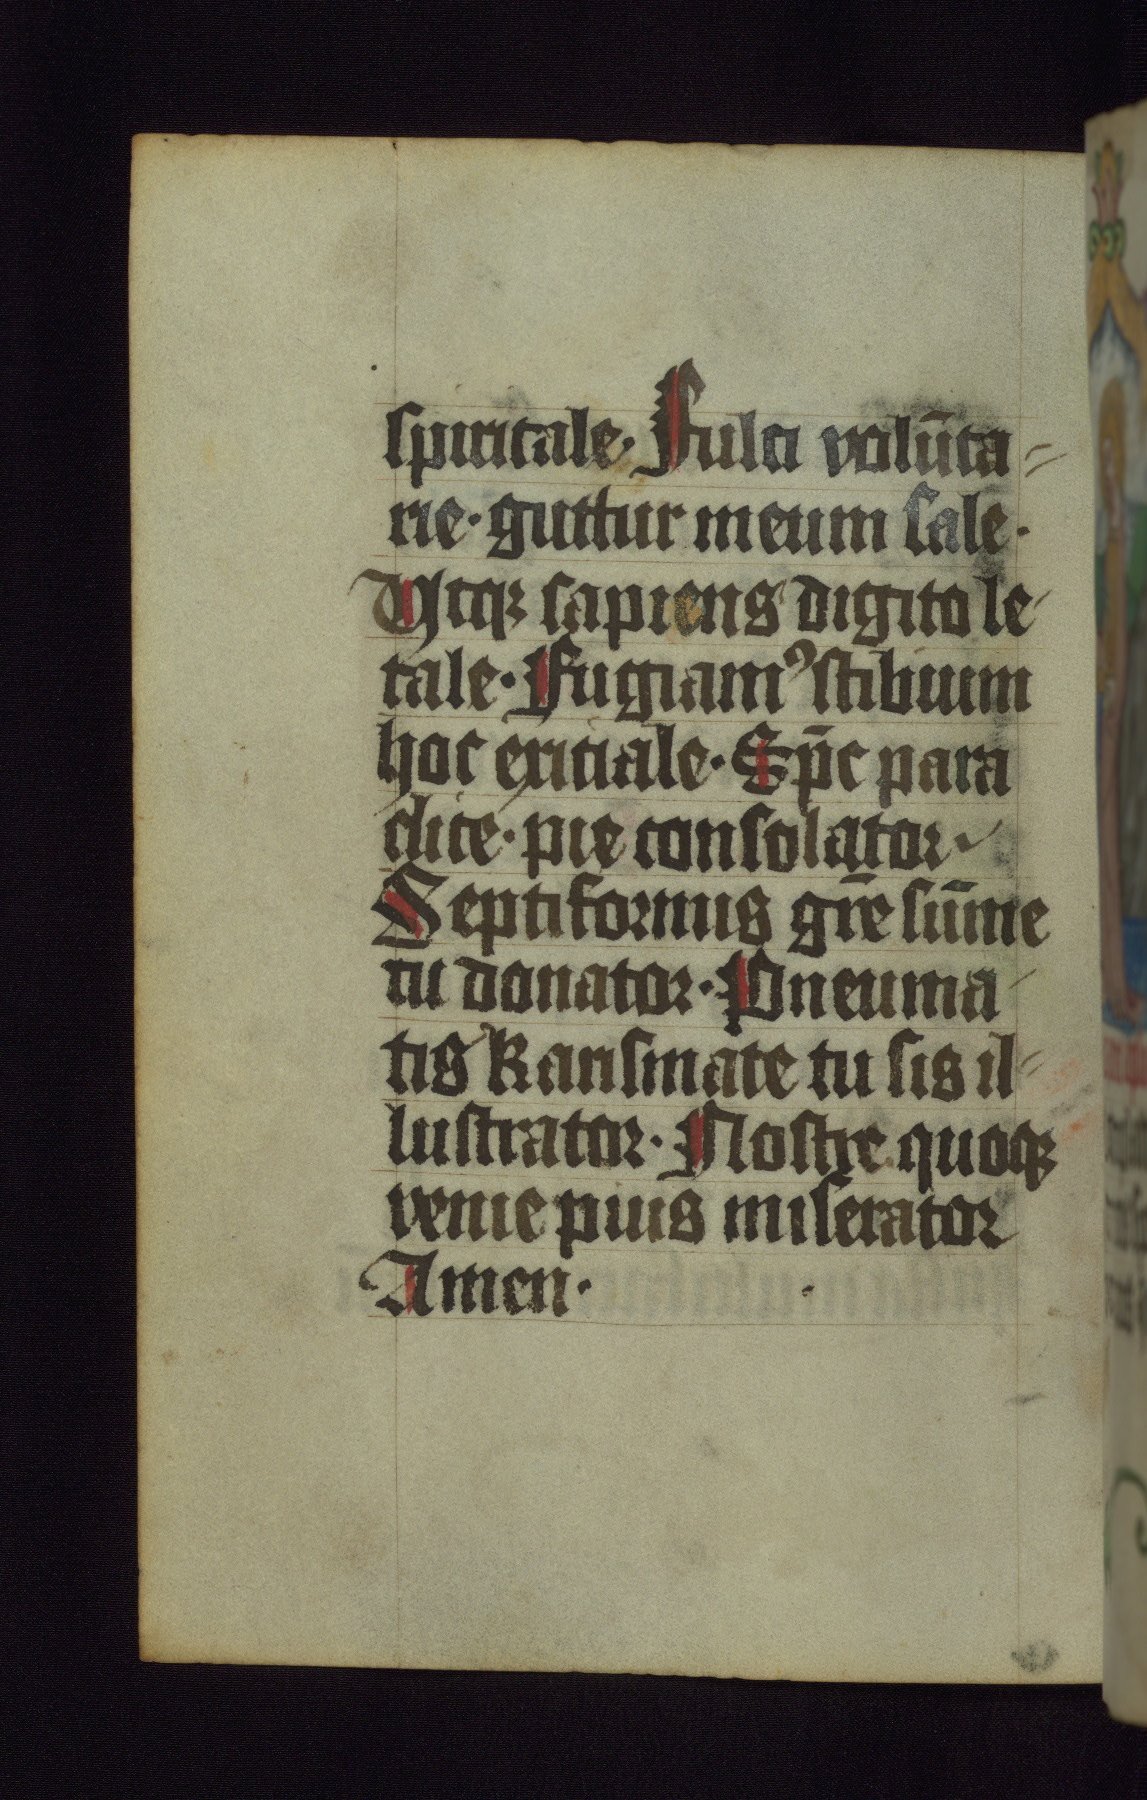 spiritale· Fulci volūta=
rie· guttur meum sale·
Vtqꝫ sapiens digito le
tale· Fugiamꝰ stibium
hoc exitiale· Sp̄c para
clite· pie consolator·
Septiformis gr̄e sūme
tu donator· Pneuma
tis karismate tu sis il=
lustrator· Nostre quoqꝫ
venie pius miserator
Amen·